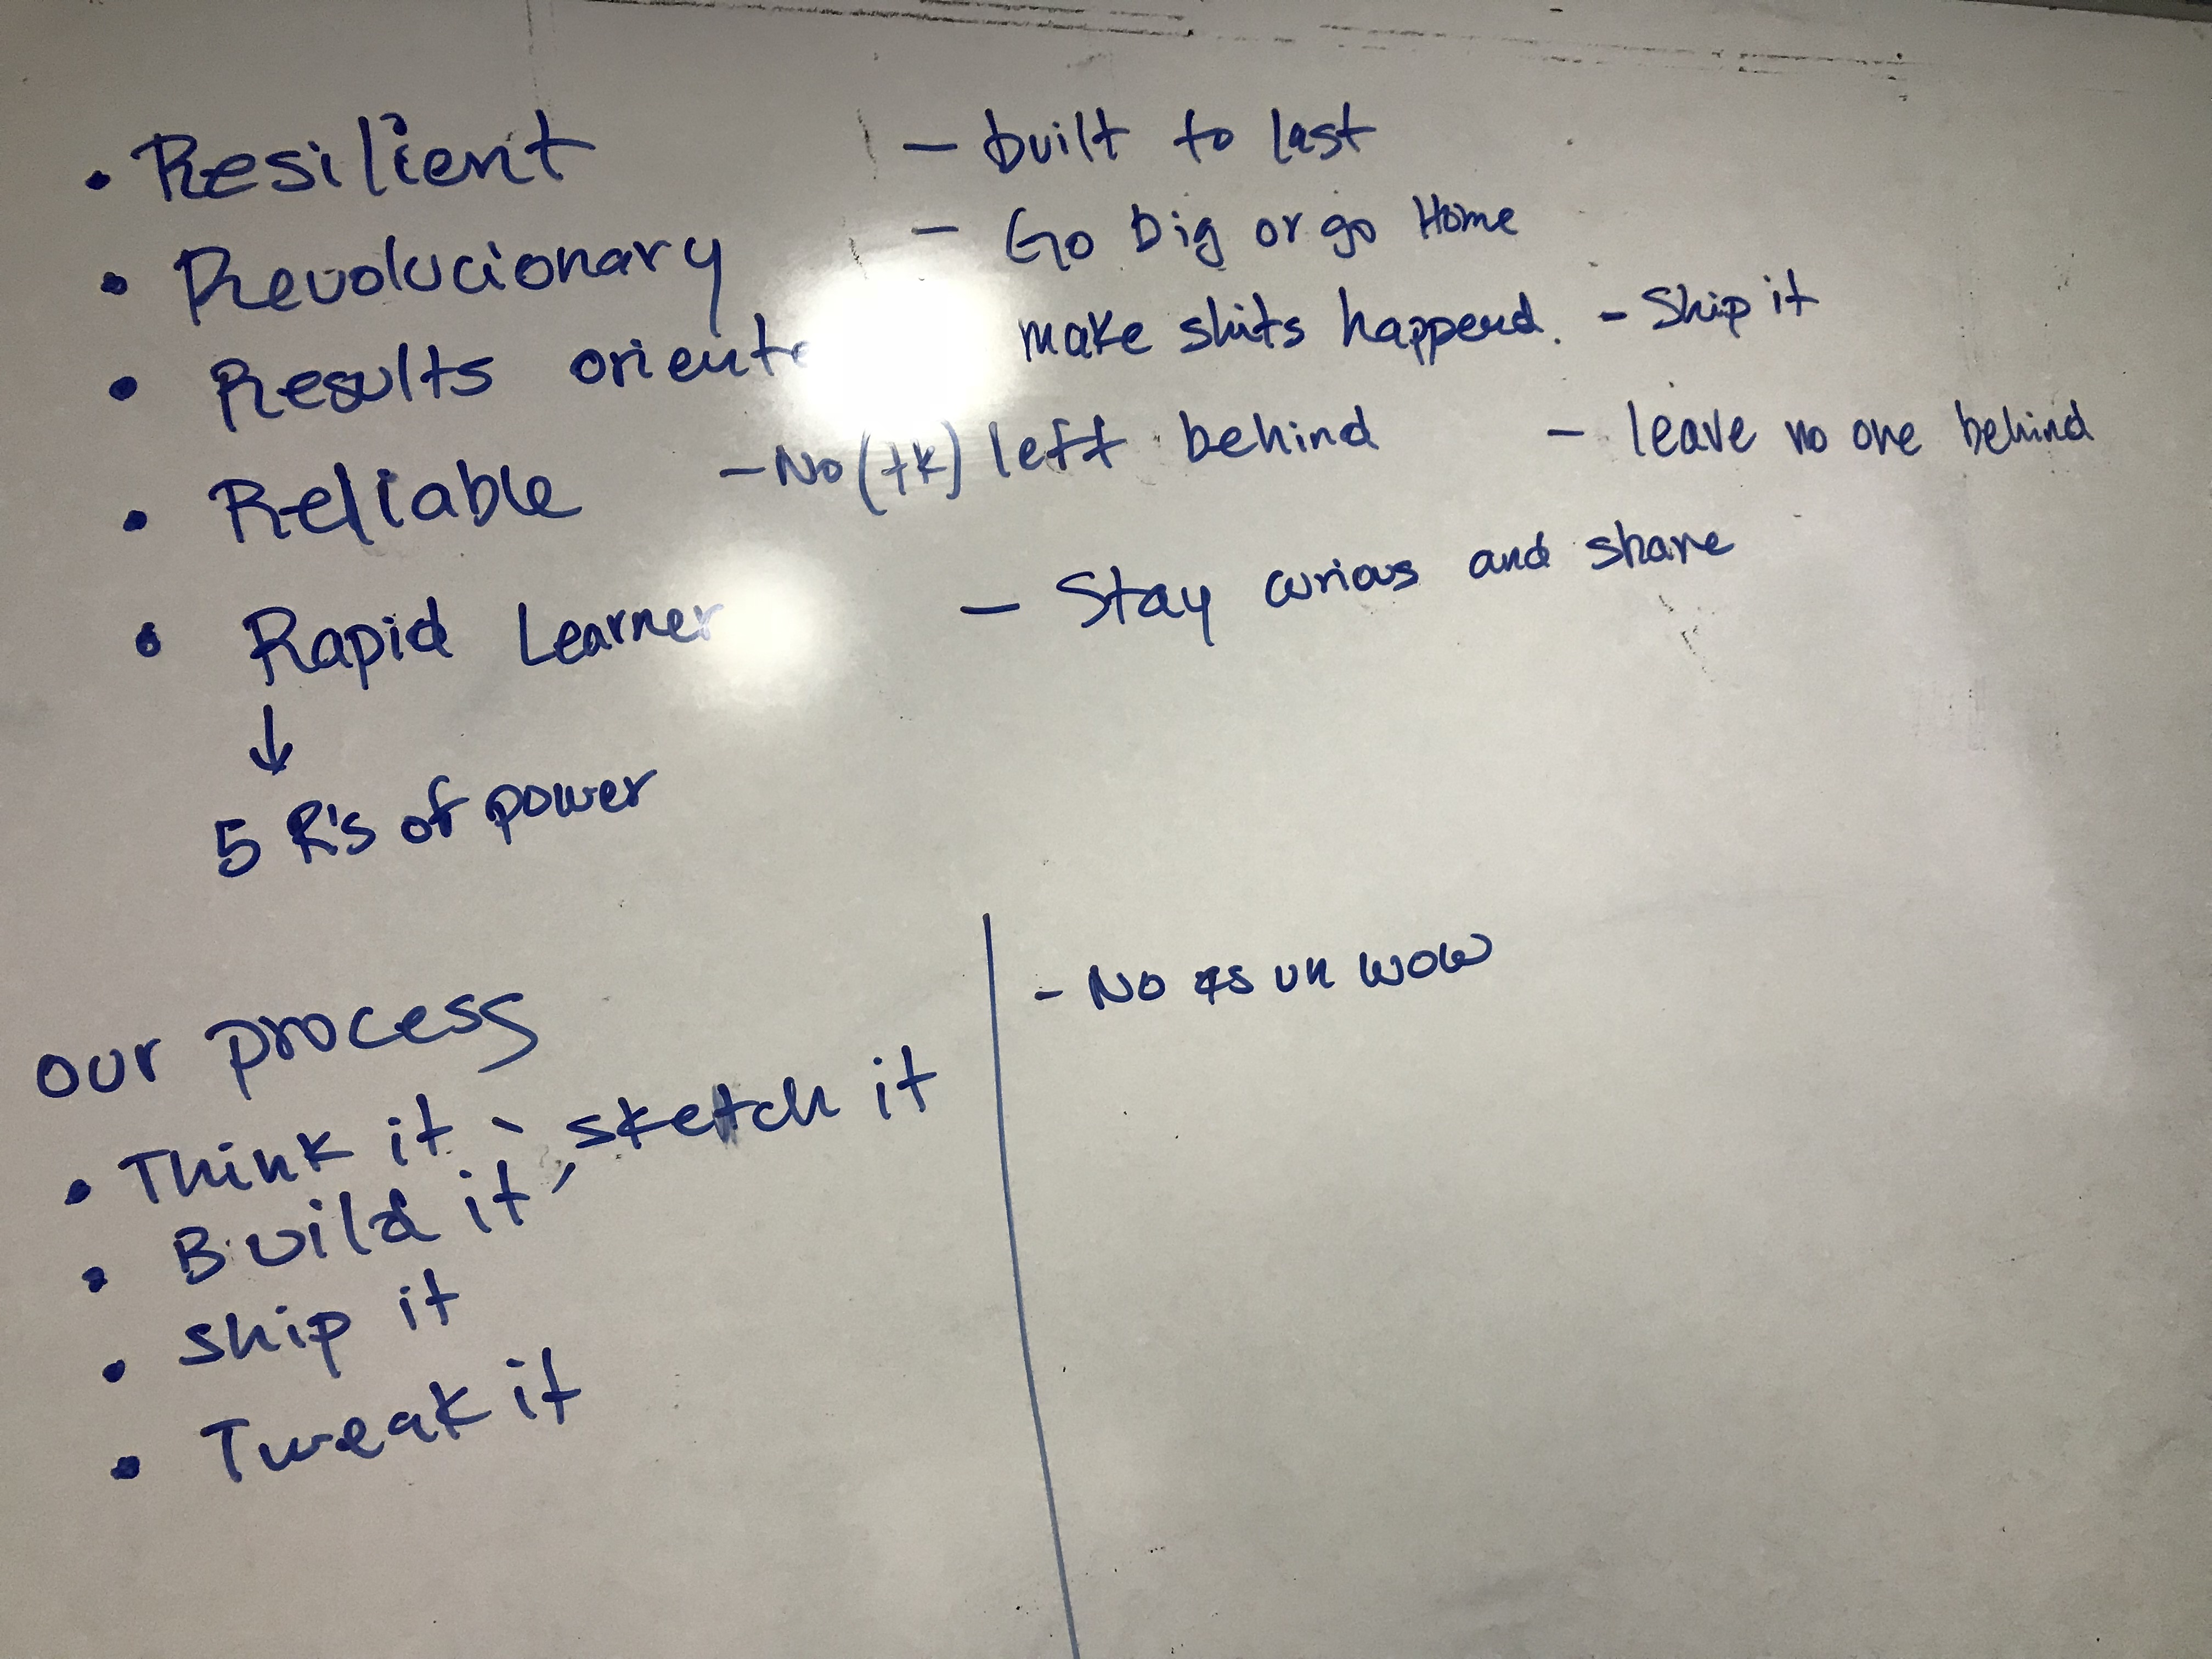 • Resilient - built to last
• Revolucionary - Go big or go Home
• Results oriente make shits happend. - Ship it
• Reliable - No (tk) left behind - leave no one behind
• Rapid Learner - Stay curious and share
↓
5 R's of power
our process
• Think it, sketch it
• Build it
• Ship it
• Tweak it
- No es un wow